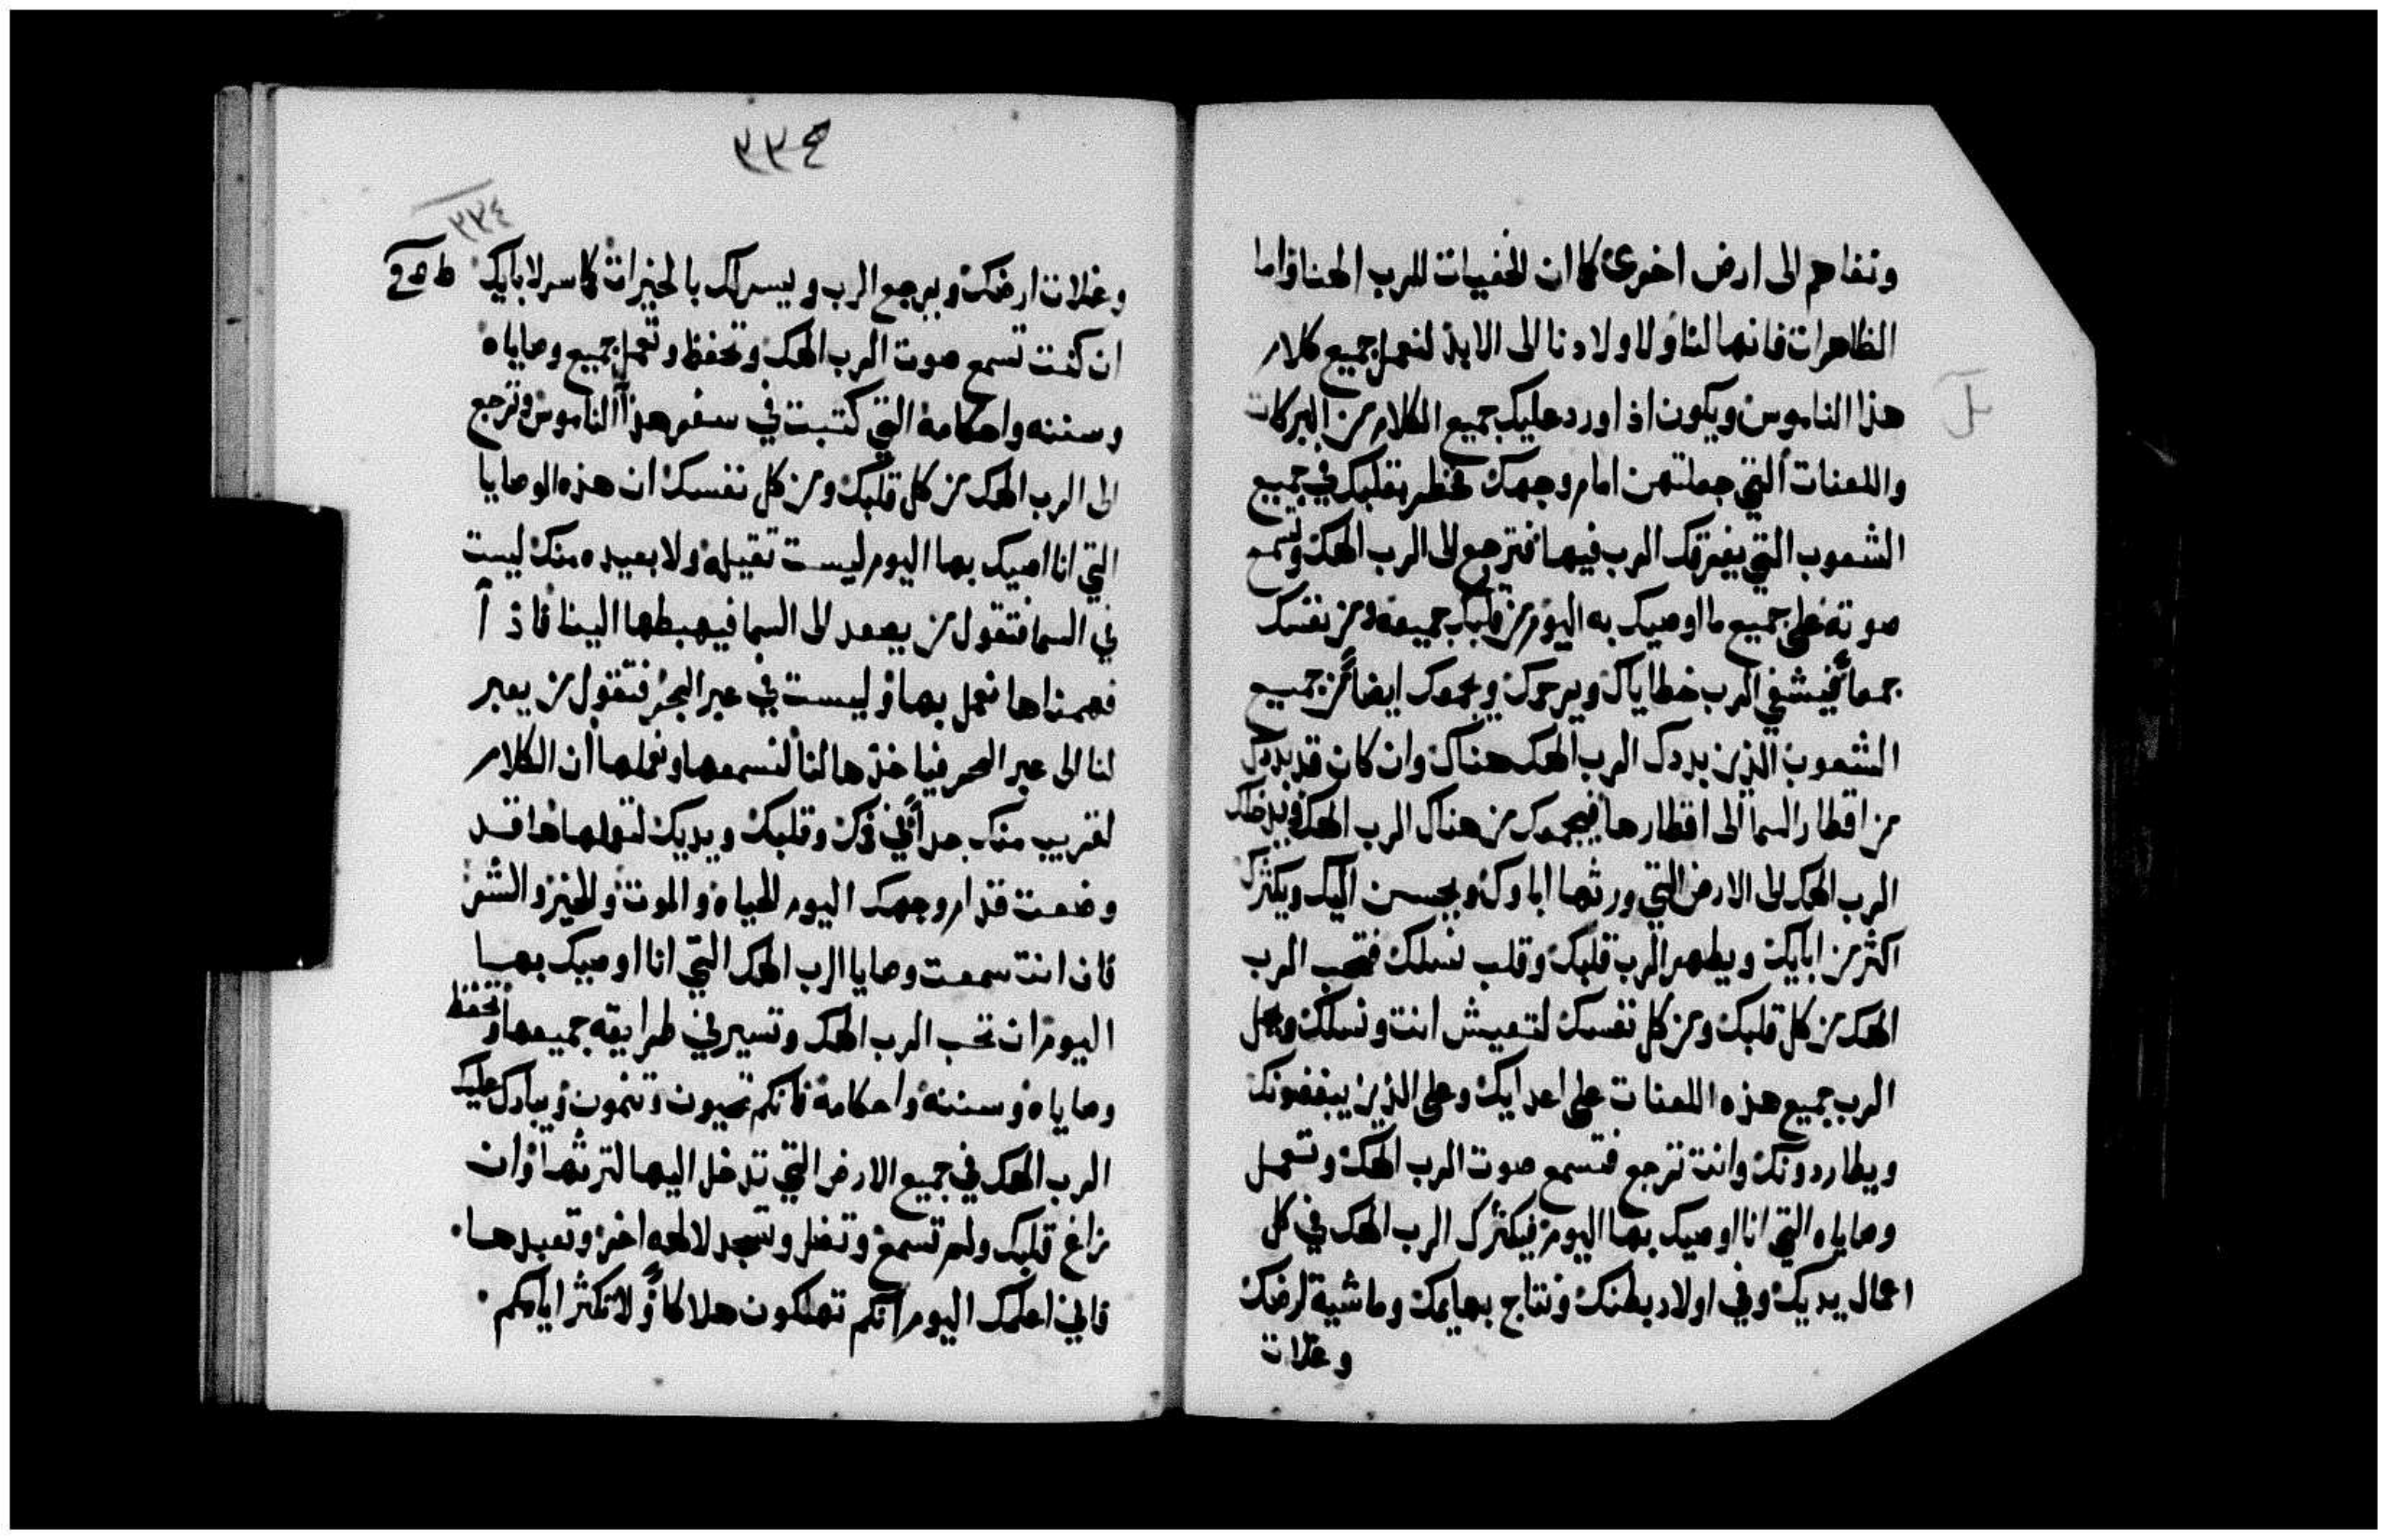 ونفاهم الى ارض اخرى كما ان الخفيات للرب الهنا واما
الظاهرات فانها لنا ولاولادنا الى الابد لنعمل جميع كلام
هذا الناموس ويكون اذا ورد عليك جميع الكلام من البركات
واللعنات التي جعلتهن امام وجهك تخطر بقلبك في جميع
الشعوب التي يفرقك الرب فيها فترجع الى الرب الهك وتسمع
صوته على جميع ما اوصيك به اليوم من قلبك جميعه ومن نفسك
جمعاً فيشفي الرب خطاياك ويرحمك ويجمعك ايضاً من جميع
الشعوب الذين بددك الرب الهك هناك وان كان قد بددك
من اقطار السما الى اقطارها فيجمعك من هناك الرب الهك ويدخلك
الرب الهك الى الارض التي ورثها اباوك ويحسن اليك ويكثرك
اكثر من ابايك ويطهر الرب قلبك وقلب نسلك فتحب الرب
الهك من كل قلبك ومن كل نفسك لتعيش انت ونسلك ويجعل
الرب جميع هذه اللعنات على اعدايك وعلى الذين يبغضونك
ويطاردونك وانت ترجع فتسمع صوت الرب الهك وتعمل
وصاياه التي انا اوصيك بها اليوم فيكثرك الرب الهك في كل
اعمال يديك وفي اولاد بطنك ونتاج بهايمك وماشية ارضك
وغلات
٣٣٤
٣٣٤
وغلات ارضك ويرجع الرب ويسر لك بالخيرات كما سر لابايك
ان كنت تسمع صوت الرب الهك وتحفظ وتعمل جميع وصاياه
وسننه واحكامه التي كتبت في سفر هذا الناموس وترجع
الى الرب الهك من كل قلبك ومن كل نفسك ان هذه الوصايا
التي انا اصيك بها اليوم ليست ثقيله ولا بعيده منك ليست
في السما فتقول من يصعد الى السما فيهبطها الينا فاذا
فهمناها نعمل بها وليست في عبر البحر فتقول من يعبر
لنا الى عبر البحر فياخذها لنا لنسمعها ونعملها ان الكلام
لقريب منك جداً في فمك وقلبك ويديك لتعملها ها قد
وضعت قدام وجهك اليوم الحياه والموت والخير والشر
فان انت سمعت وصايا الرب الهك التي انا اوصيك بها
اليوم ان تحب الرب الهك وتسير في طرايقه جميعها وتحفظ
وصاياه وسننه واحكامه فانكم تحيون وتنمون ويبارك عليك
الرب الهك في جميع الارض التي تدخل اليها لترثها وان
زاغ قلبك ولم تسمع وتضل وتسجد لالهه اخر وتعبدها
فاني اعلمك اليوم انكم تهلكون هلاكاً ولا تكثر ايامكم